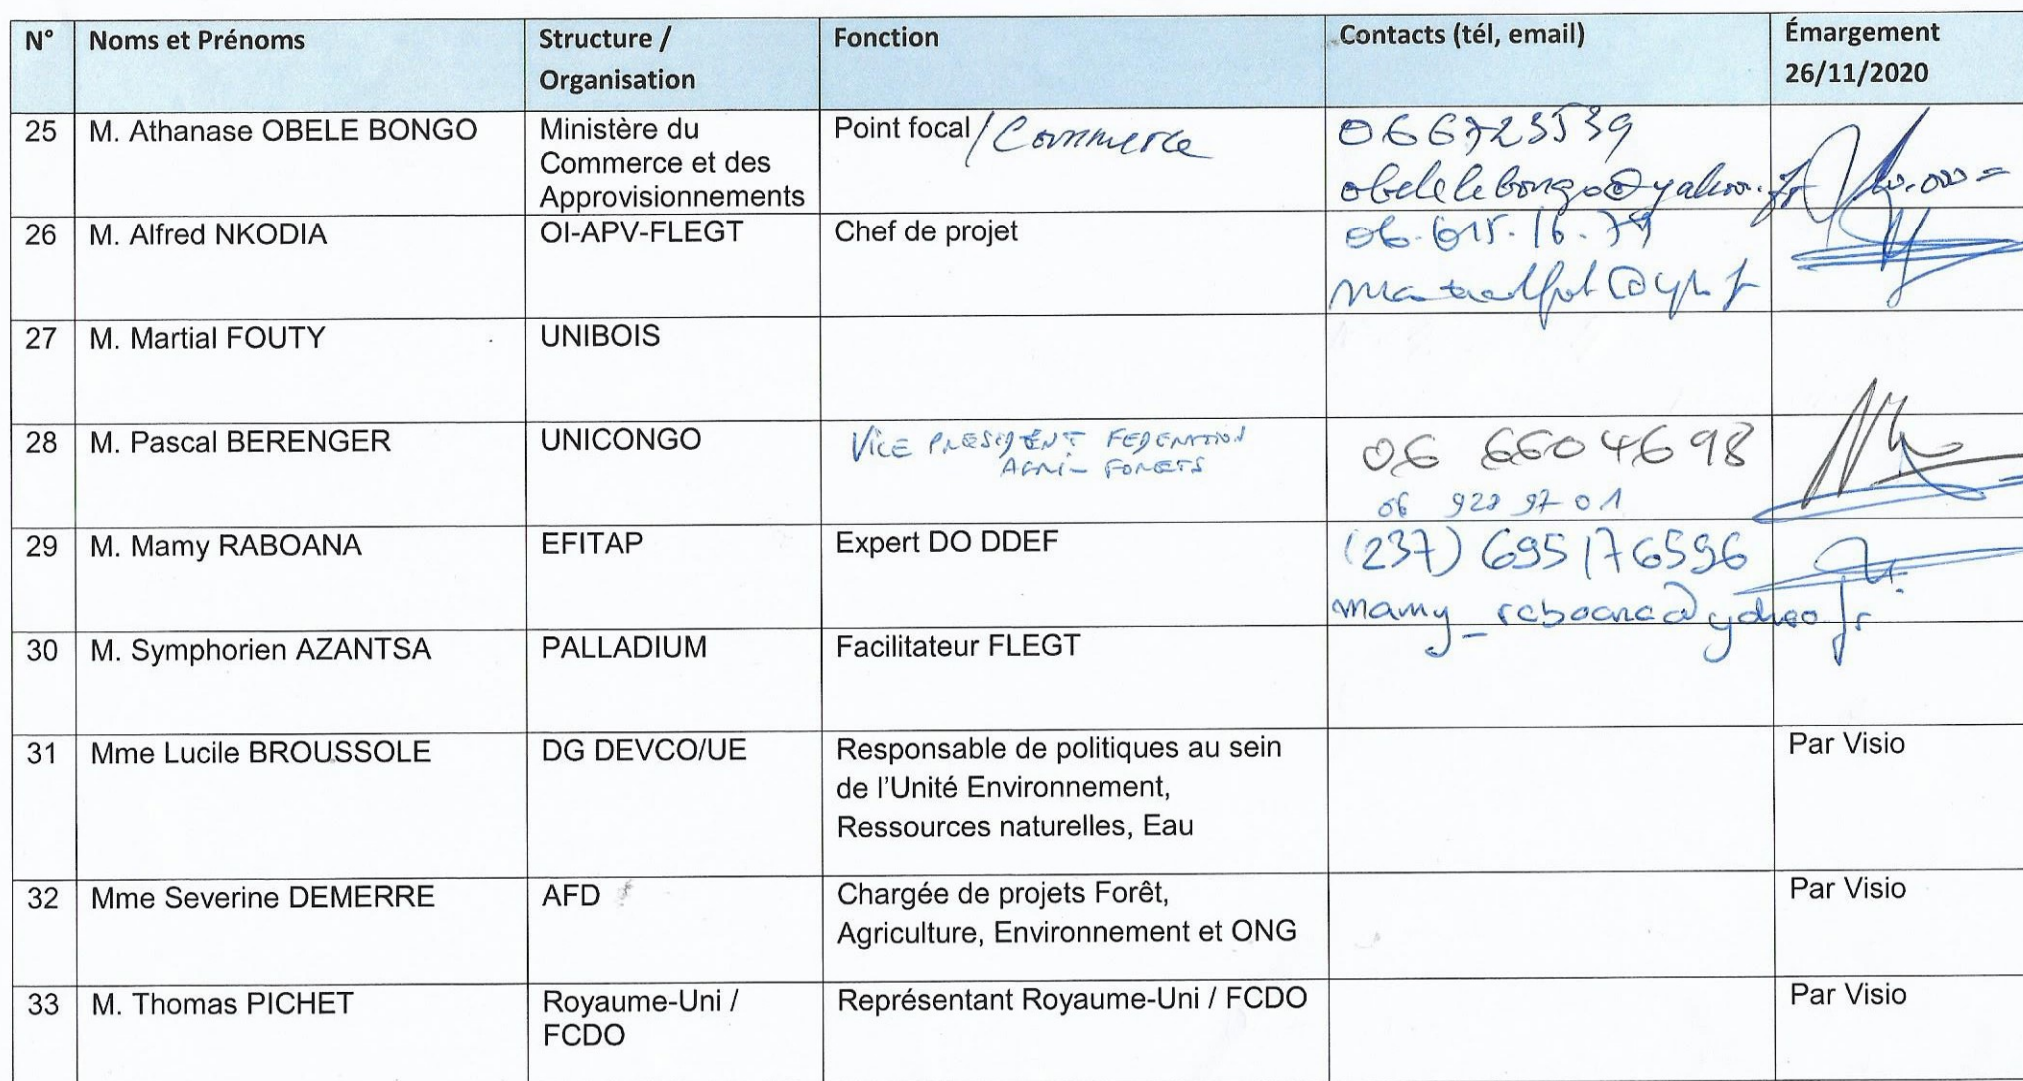 N° Noms et Prénoms Structure / Fonction Contacts (tél, email) Émargement
Organisation 26/11/2020
25 M. Athanase OBELE BONGO Ministère du Point focal / Commerce 066723539
Commerce et des
Approvisionnements obelelebongo@yahoo.fr
26 M. Alfred NKODIA OI-APV-FLEGT Chef de projet 06.615.16.79
27 M. Martial FOUTY UNIBOIS
28 M. Pascal BERENGER UNICONGO VICE PRESIDENT FEDERATION 06 6604698
AGRI- FORETS
06 928 97 01
29 M. Mamy RABOANA EFITAP Expert DO DDEF (237) 695176596
mamy_raboana@yahoo.fr
30 M. Symphorien AZANTSA PALLADIUM Facilitateur FLEGT
31 Mme Lucile BROUSSOLE DG DEVCO/UE Responsable de politiques au sein Par Visio
de l'Unité Environnement,
Ressources naturelles, Eau
32 Mme Severine DEMERRE AFD Chargée de projets Forêt, Par Visio
Agriculture, Environnement et ONG
33 M. Thomas PICHET Royaume-Uni / Représentant Royaume-Uni / FCDO Par Visio
FCDO